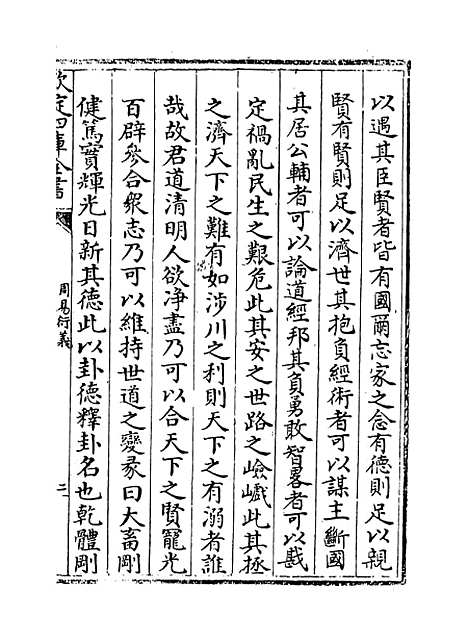 以遇其臣賢者皆有國爾忘家之念有德則足以親
賢有賢則足以濟世其抱負經術者可以謀主斷國
其居公輔者可以論道經邦其負勇敢智畧者可以戡
定禍亂民生之艱危此其安之世路之嶮巇此其拯
之濟天下之難有如涉川之利則天下之有溺者誰
哉故君道清明人欲净盡乃可以合天下之賢寵光
百辟參合衆志乃可以維持世道之變彖曰大畜剛
健篤實輝光日新其德此以卦德釋卦名也乾體剛
欽定四庫全書
周易衍義
三